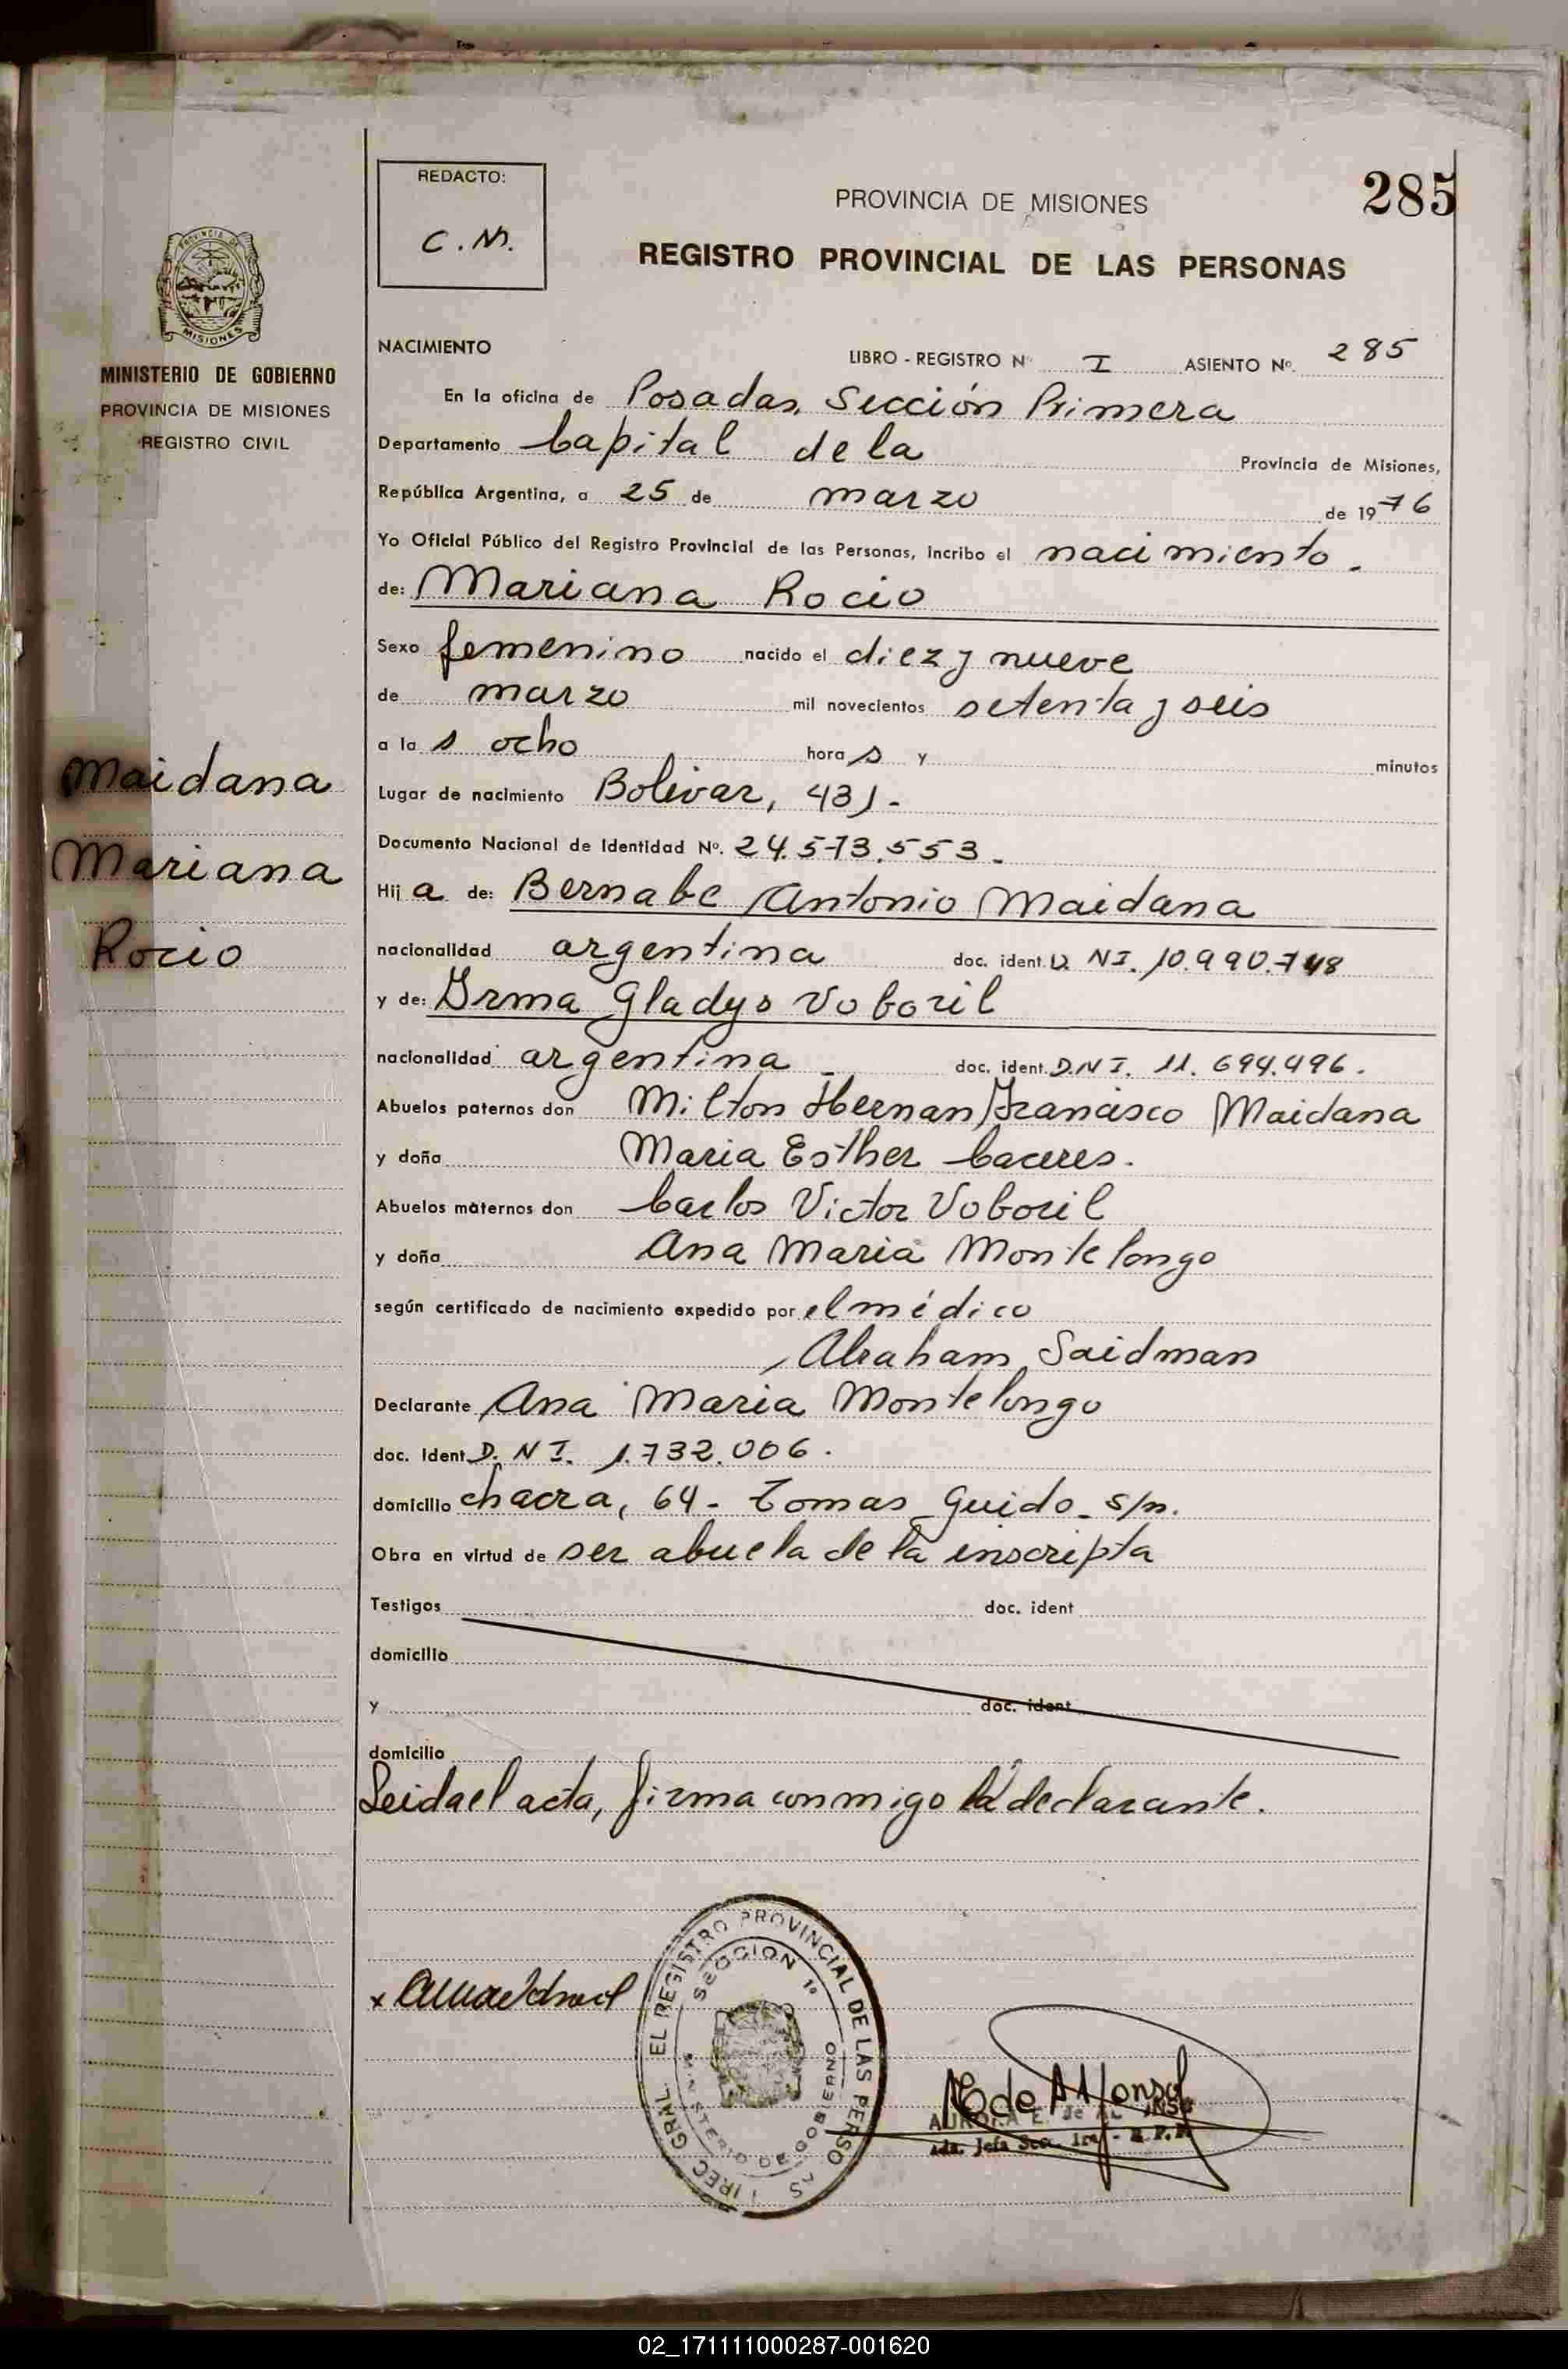 285
REDACTO:
C.M.
PROVINCIA DE MISIONES
REGISTRO PROVINCIAL DE LAS PERSONAS
PROVINCIA DE
MISIONES
MINISTERIO DE GOBIERNO
PROVINCIA DE MISIONES
REGISTRO CIVIL
Maidana
Mariana
Rocio
NACIMIENTO LIBRO - REGISTRO Nº I ASIENTO Nº. 285
En la oficina de Posadas, Sección Primera
Departamento Capital de la Provincia de Misiones,
República Argentina, a 25 de marzo de 1976
Yo Oficial Público del Registro Provincial de las Personas, incribo el nacimiento.
de: Mariana Rocio
Sexo femenino nacido el diez y nueve
de marzo mil novecientos setenta y seis
a las ocho horas y minutos
Lugar de nacimiento Bolivar, 431.-
Documento Nacional de Identidad Nº. 24.573.553.-
Hija de: Bernabe Antonio Maidana
nacionalidad argentina doc. ident. D. NI. 10.990.748
y de: Irma Gladys Voboril
nacionalidad argentina doc. ident. D.N I. 11.694.496.
Abuelos paternos don Milton Hernan Francisco Maidana
y doña Maria Esther Caceres.
Abuelos maternos don Carlos Victor Voboril
y doña Ana Maria Montelongo
según certificado de nacimiento expedido por el médico
Abraham Saidman
Declarante Ana Maria Montelongo
doc. Ident. D. N I. 1.732.006.
domicilio chacra, 64 - Tomas Guido - s/n.
Obra en virtud de ser abuela de la inscripta
Testigos doc. ident
domicilio
y doc. ident
domicilio
Leida el acta, firma conmigo la declarante.
EL REGISTRO PROVINCIAL DE LAS PERSO AS
SECCION 1º
MINISTERIO DE GOBIERNO
de Alfonso
02_171111000287-001620